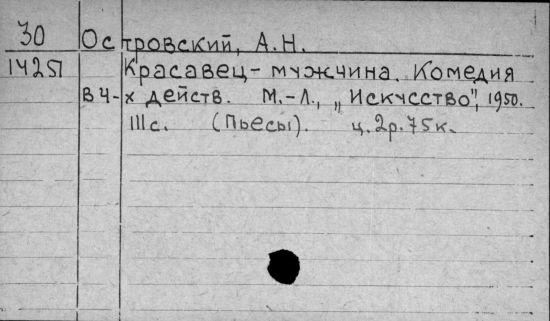 30 Островский, А.Н.
14251 Красавец-мужчина. Комедия
в 4-х действ. М.-Л., „Искусство", 1950.
111с. (Пьесы). ц.2р.75к.